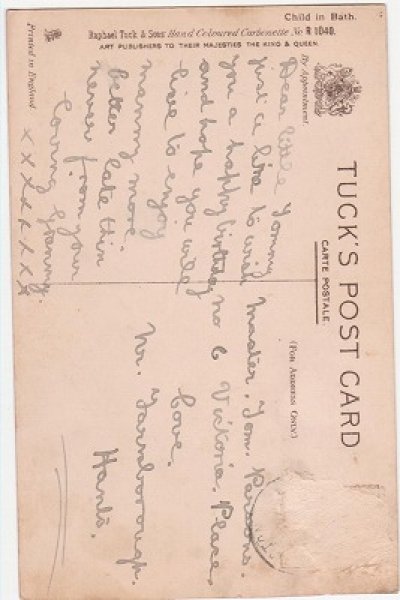 Child in Bath.
Raphael Tuck & Sons' Hand Coloured Carbonette No R 1040.
ART PUBLISHERS TO THEIR MAJESTIES THE KING & QUEEN.
By Appointment.
TUCK'S POST CARD
CARTE POSTALE.
(FOR ADDRESS ONLY.)
Printed in England.
Dear little Tommy
just a line to wish
you a happy birthday
and hope you will
live to enjoy
manny more.
better late thin
never from your
loving Granny.
x x x x x x x
Master. Tom. Parsons.
no 6 Victoria. Place,
Cove.
Nr. Farnborough.
Hants.